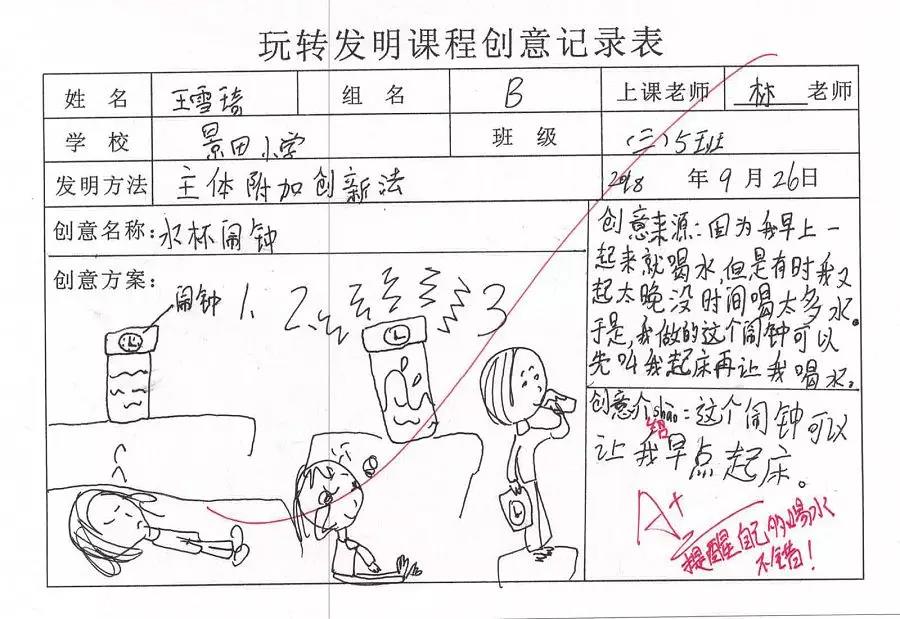 玩转发明课程创意记录表
姓 名 王雪琦 组 名 B 上课老师 林 老师
学 校 景田小学 班 级 (三)5班
发明方法 主体附加创新法 2018 年9月26日
创意名称:水杯闹钟
创意方案:
闹钟 1. 2. 3
创意来源:因为我早上一
起来就喝水,但是有时我又
起太晚没时间喝太多水。
于是,我做的这个闹钟可以
先叫我起床再让我喝水。
创意介shào:这个闹钟可以
绍
让我早点起床。
A+
提醒自己多喝水
不错!